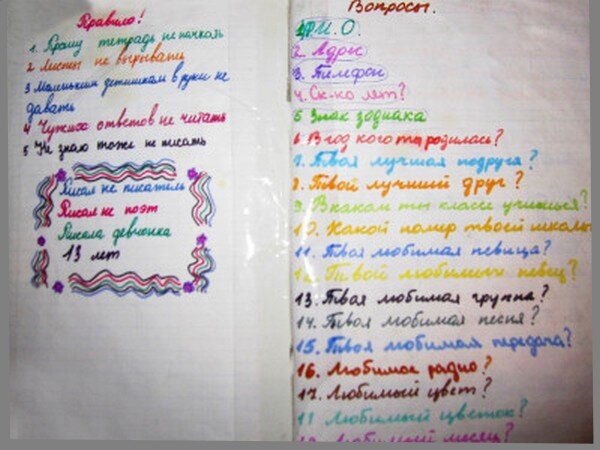 Правила!
1. Прошу тетрадь не пачкать
2 Листы не вырывать
3 Маленьким детишкам в руки не
давать
4 Чужих ответов не читать
5 Не знаю тоже не писать
Писал не писатель
Писал не поэт
Писала девчонка
13 лет
Вопросы.
1. Ф.И.О.
2. Адрес
3. Телефон
4. Ск-ко лет?
5 Знак зодиака
6. В год кого ты родилась?
7. Твоя лучшая подруга?
8. Твой лучший друг?
9. В каком ты классе учишься?
10. Какой номер твоей школы
11. Твоя любимая певица?
12. Твой любимый певец?
13. Твоя любимая группа?
14. Твоя любимая песня?
15. Твоя любимая передача?
16. Любимое радио?
17. Любимый цвет?
18 Любимый цветок?
Любимый месяц?